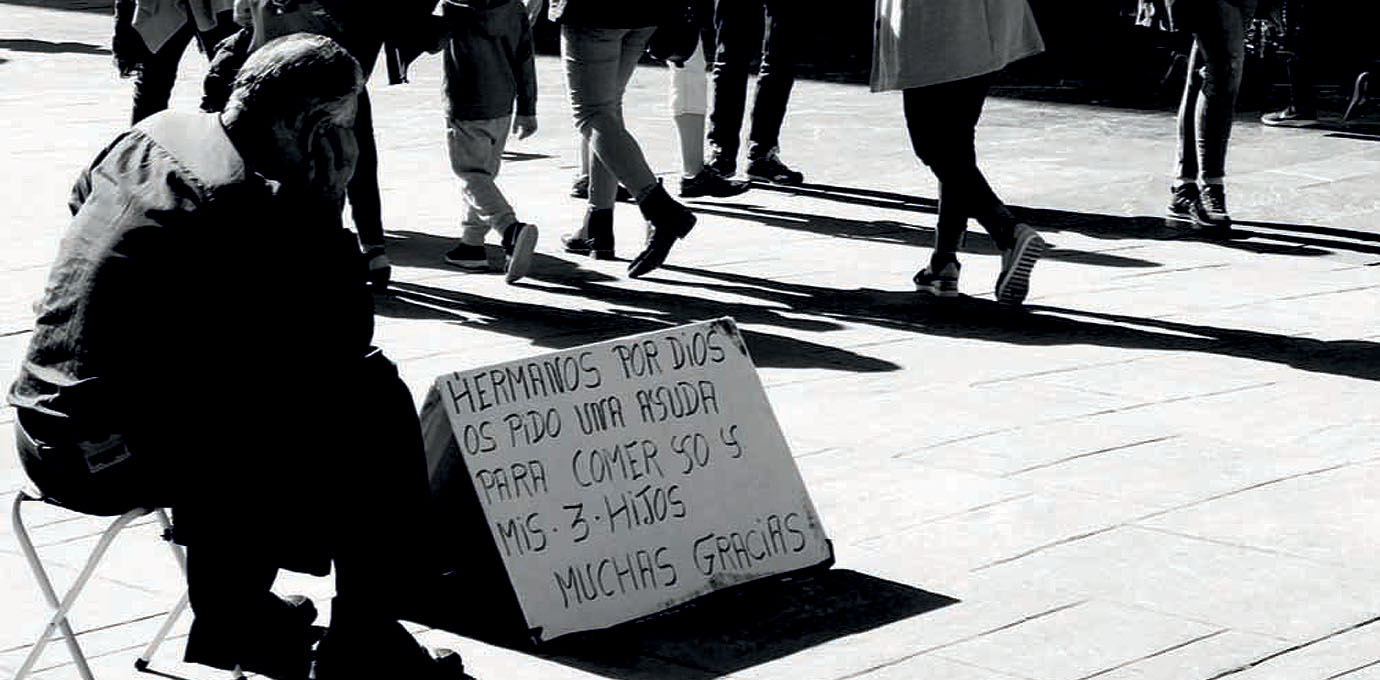 HERMANOS POR DIOS
OS PiDO UNA AYUDA
PARA COMER YO Y
MIS. 3. HIJOS
MUCHAS GRACIAS